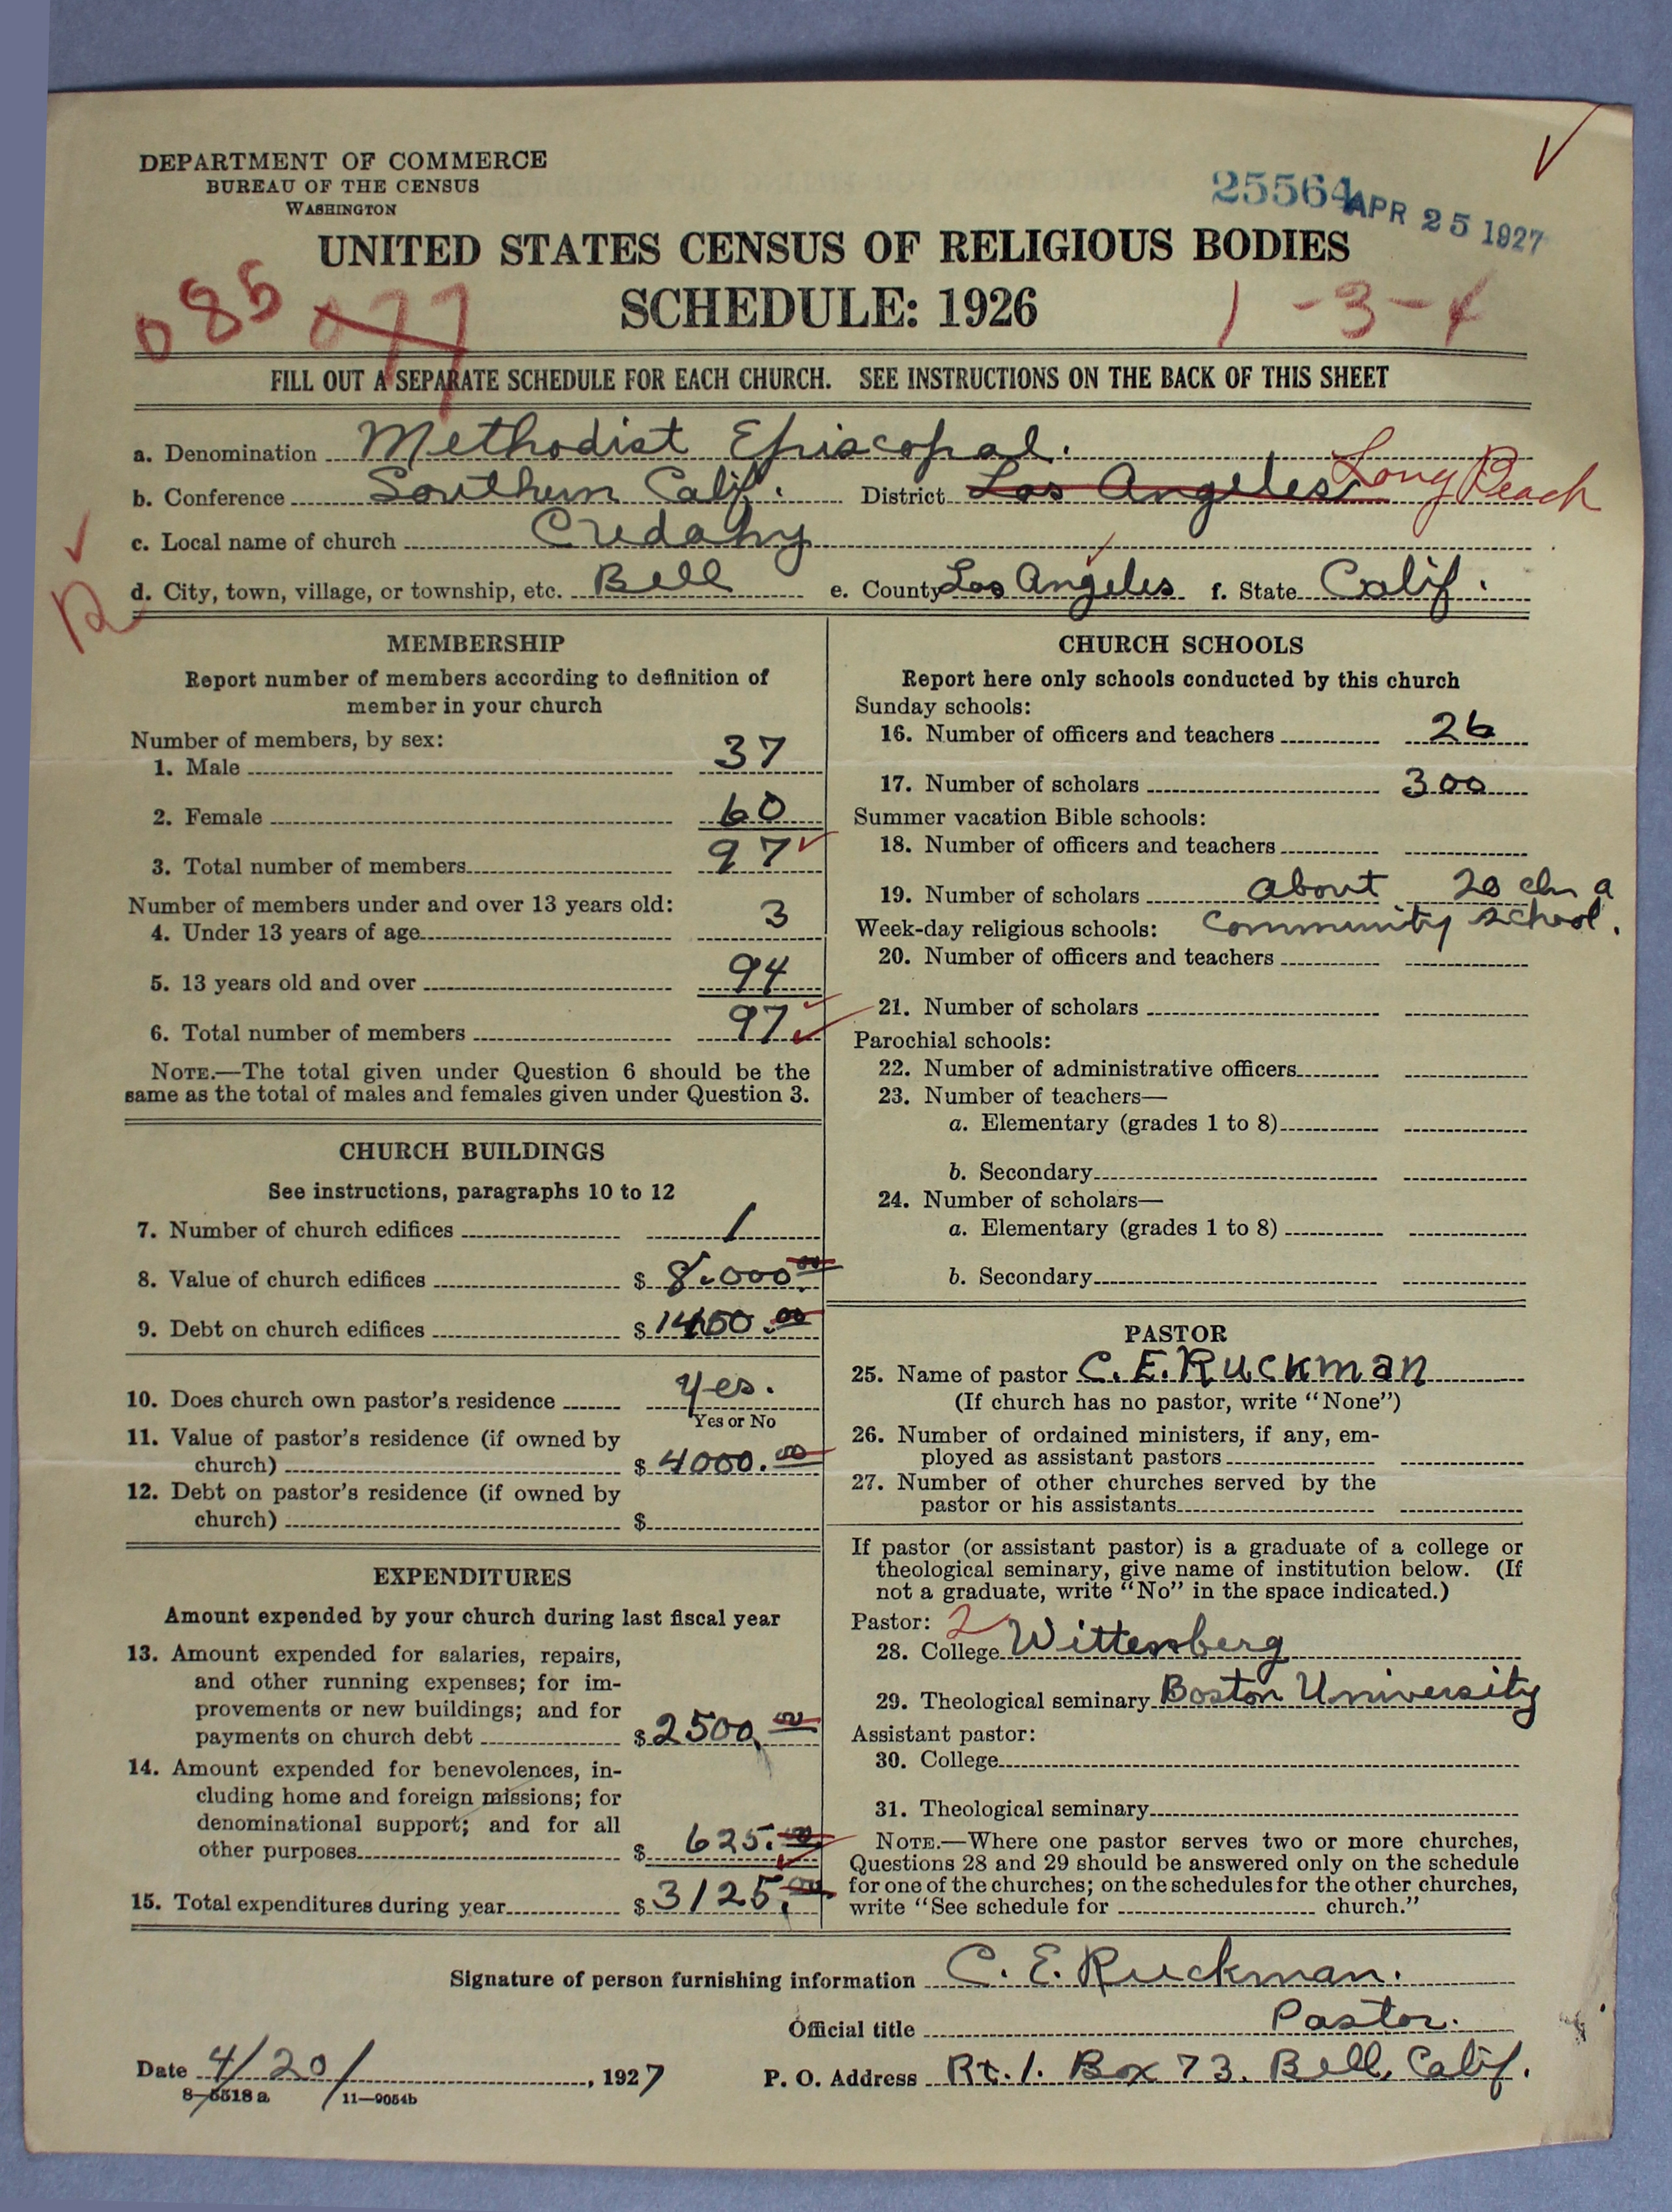 DEPARTMENT OF COMMERCE
BUREAU OF THE CENSUS
WASHINGTON
25564 APR 25 1927
UNITED STATES CENSUS OF RELIGIOUS BODIES
SCHEDULE: 1926
085 077 1-3-4
FILL OUT A SEPARATE SCHEDULE FOR EACH CHURCH. SEE INSTRUCTIONS ON THE BACK OF THIS SHEET
a. Denomination Methodist Episcopal.
b. Conference Southern Calif. District Los Angeles Long Beach
c. Local name of church Cudahy
d. City, town, village, or township, etc. Bell e. County Los Angeles f. State Calif.
MEMBERSHIP
Report number of members according to definition of
member in your church
Number of members, by sex:
1. Male 37
2. Female 60
3. Total number of members 97
Number of members under and over 13 years old:
4. Under 13 years of age 3
5. 13 years old and over 94
6. Total number of members 97
NOTE.—The total given under Question 6 should be the
same as the total of males and females given under Question 3.
CHURCH BUILDINGS
See instructions, paragraphs 10 to 12
7. Number of church edifices 1
8. Value of church edifices $ 8,000.00
9. Debt on church edifices $ 1450.00
10. Does church own pastor's residence Yes.
Yes or No
11. Value of pastor's residence (if owned by
church) $ 4000.00
12. Debt on pastor's residence (if owned by
church) $
EXPENDITURES
Amount expended by your church during last fiscal year
13. Amount expended for salaries, repairs,
and other running expenses; for im-
provements or new buildings; and for
payments on church debt $ 2500.00
14. Amount expended for benevolences, in-
cluding home and foreign missions; for
denominational support; and for all
other purposes $ 625.00
15. Total expenditures during year $ 3125.00
CHURCH SCHOOLS
Report here only schools conducted by this church
Sunday schools:
16. Number of officers and teachers 26
17. Number of scholars 300
Summer vacation Bible schools:
18. Number of officers and teachers
19. Number of scholars about 20 a
Week-day religious schools: community school.
20. Number of officers and teachers
21. Number of scholars
Parochial schools:
22. Number of administrative officers
23. Number of teachers—
a. Elementary (grades 1 to 8)
b. Secondary
24. Number of scholars—
a. Elementary (grades 1 to 8)
b. Secondary
PASTOR
25. Name of pastor C. E. Ruckman
(If church has no pastor, write "None")
26. Number of ordained ministers, if any, em-
ployed as assistant pastors
27. Number of other churches served by the
pastor or his assistants
If pastor (or assistant pastor) is a graduate of a college or
theological seminary, give name of institution below. (If
not a graduate, write "No" in the space indicated.)
Pastor: 2
28. College Wittenberg
29. Theological seminary Boston University
Assistant pastor:
30. College
31. Theological seminary
NOTE.—Where one pastor serves two or more churches,
Questions 28 and 29 should be answered only on the schedule
for one of the churches; on the schedules for the other churches,
write "See schedule for church."
Signature of person furnishing information C. E. Ruckman.
Official title Pastor.
Date 4/20/, 1927 P. O. Address Rt. 1. Box 73. Bell, Calif.
8-5518 a 11—9054b